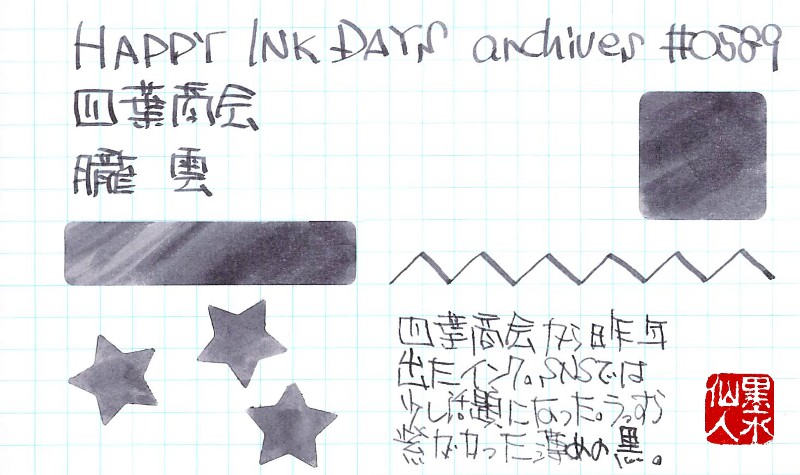 HAPPY INK DAYS archives #0589
四葉商会
朧雲
四葉商会から昨年
出たインク。SNSでは
少し話題になった。うっすら
紫がかった薄めの黒。
墨水
仙人